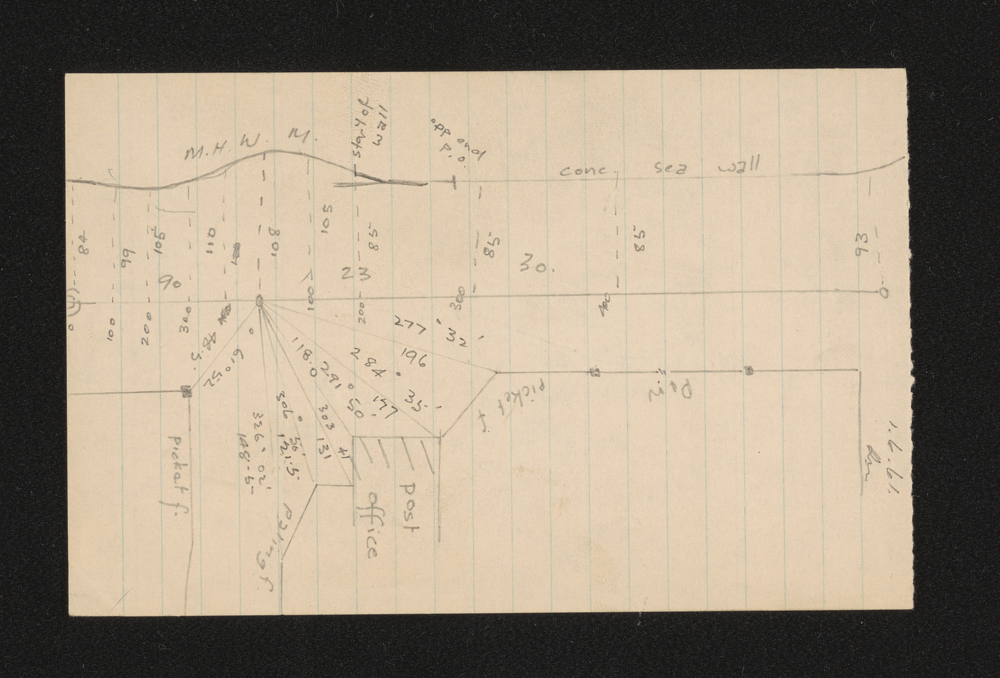 M. H. W. M.
start of wall
opp end P.O.
conc. sea wall
84
99
105
110
108
105
85
85
85
93
90
23
30.
0
100
200
300
100
200
300
61° 52'
118.0
277° 32'
196
284° 35'
177
291° 50'
303
131
306° 50'
121.5
326° 02'
148.5
Picket f.
Picket f.
Paling f.
Post
office
1.6.91.